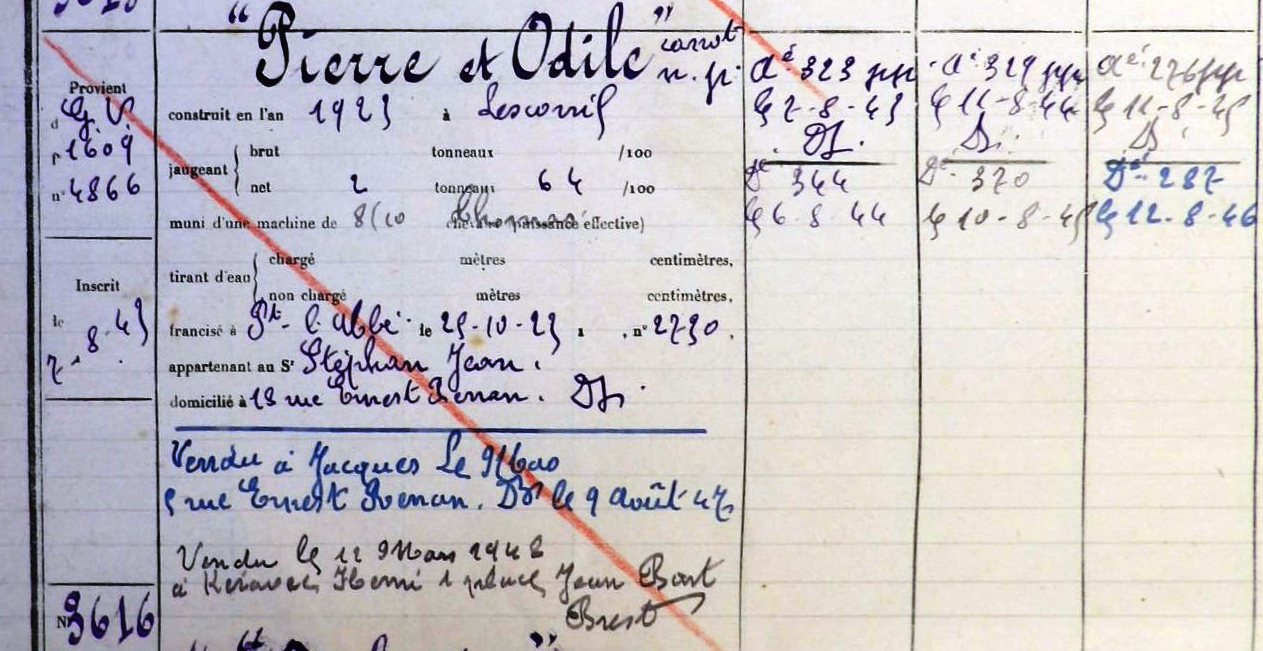 "Pierre et Odile"
Provient
d G. V.
f° 1609
n° 4866
Inscrit
le
7-8-43
N° 3616
construit en l'an 1923 à Lesconil
jaugeant
brut tonneaux /100
net 2 tonneaux 64 /100
muni d'une machine de 8/10 effective)
tirant d'eau
chargé mètres centimètres,
non chargé mètres centimètres,
francisé à Pt l'Abbé le 25-10-23, n° 2730.
appartenant au Sr Stéphan Jean.
domicilié à 18 rue Ernest Renan. Dz
Vendu à Jacques Le
5 rue Ernest Renan. Dz le 9 Août 47
Vendu le 12 Mars 1948
à Henri 1 place Jean Bart
Brest
Dé 323
le 7-8-43
Dz.
Dé 344
le 6-8-44
Dé 329
le 11-8-44
Dz.
Dé 370
le 10-8-45
Dé 276
le 11-8-45
Dz
Dé 287
le 12-8-46